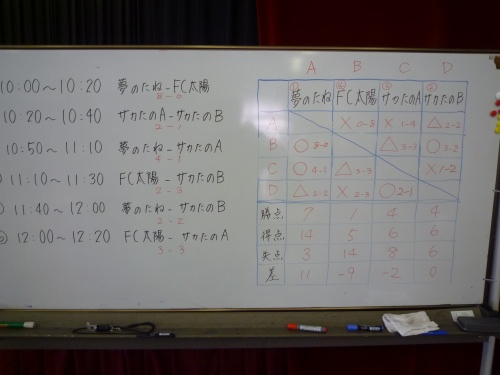 10:00〜10:20 夢のたね-FC太陽
8-0
10:20〜10:40 サカたのA-サカたのB
2-1
10:50〜11:10 夢のたね-サカたのA
4-1
11:10〜11:30 FC太陽-サカたのB
2-3
11:40〜12:00 夢のたね-サカたのB
2-2
12:00〜12:20 FC太陽-サカたのA
3-3
A B C D
夢のたね FC太陽 サカたのA サカたのB
A ×0-8 ×1-4 △2-2
B ○8-0 △3-3 ○3-2
C ○4-1 △3-3 ×1-2
D △2-2 ×2-3 ○2-1
勝点 7 1 4 4
得点 14 5 6 6
失点 3 14 8 6
差 11 -9 -2 0